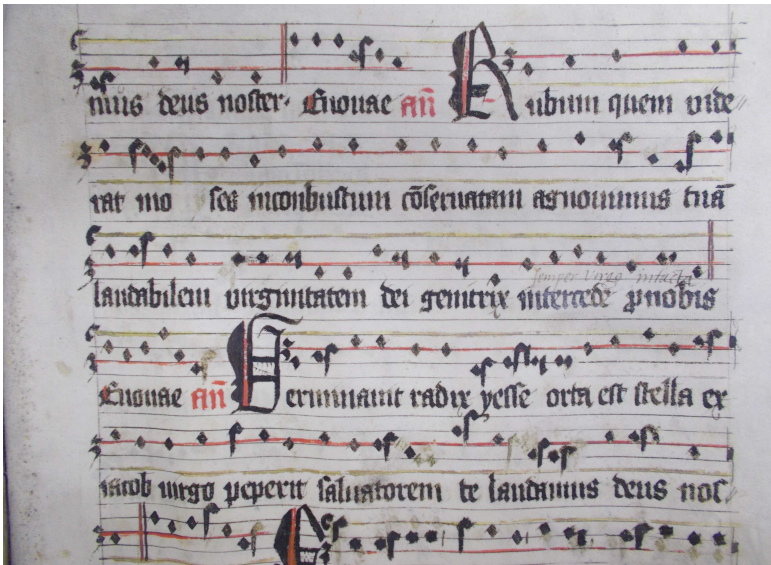 nius deus noster. Euouae an̄ Rubum quem vide
rat mo ses inconbustum cōseruatam agnouimus tuā
laudabilem virginitatem dei genitrix intercede pnobis
semper virgo intacta
Euouae an̄ Germinauit radix yesse orta est stella ex
iacob virgo peperit saluatorem te laudamus deus nos